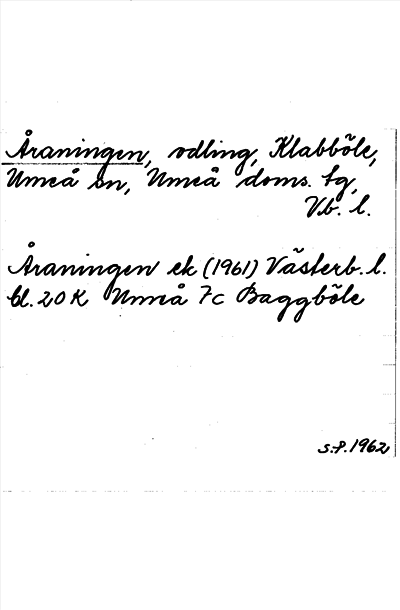 Åraningen, odling, Klabböle,
Umeå sn, Umeå doms. tg,
Vb. l.
Åraningen ek (1961) Västerb. l.
bl. 20 K Umeå 7c Baggböle
S.P. 1962